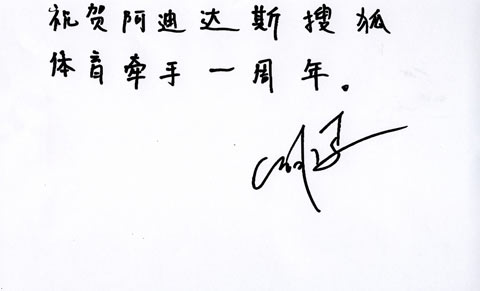 祝贺阿迪达斯搜狐
体育牵手一周年。